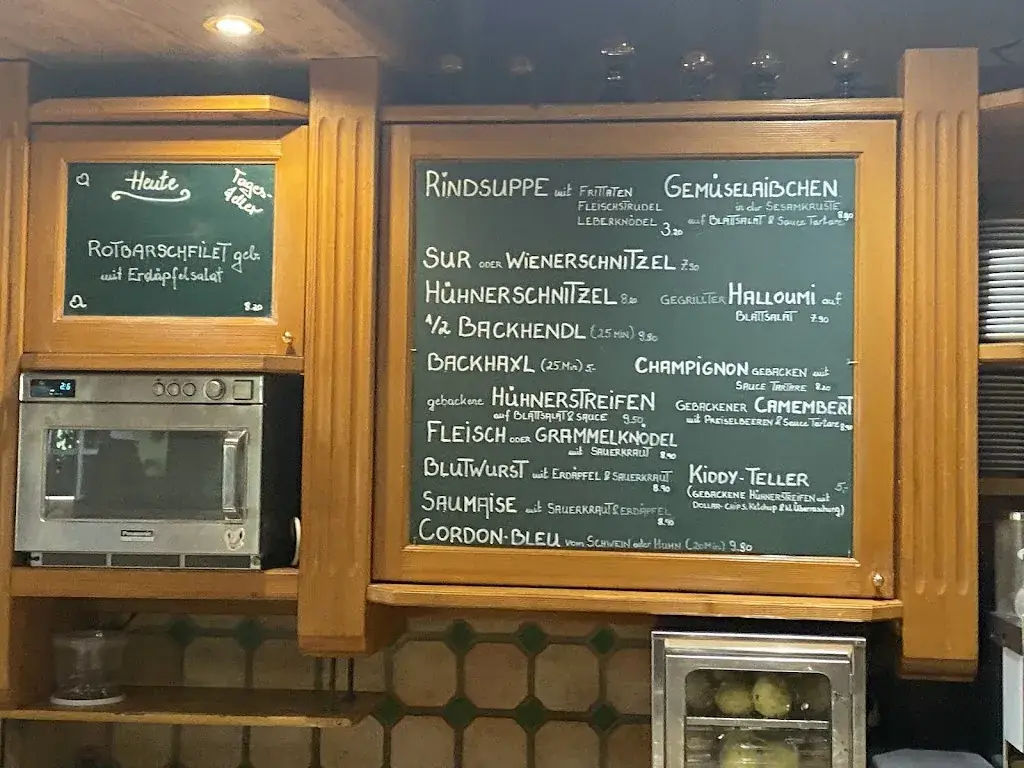 Heute
Tages-
Adler
ROTBARSCHFILET geb.
mit Erdäpfelsalat
8.20
RINDSUPPE mit FRITTATEN
FLEISCHSTRUDEL
LEBERKNÖDEL 3.20
SUR ODER WIENERSCHNITZEL 7.90
HÜHNERSCHNITZEL 8.20
1/2 BACKHENDL (25 MIN) 9.90
BACKHAXL (25 Min) 5.-
gebackene HÜHNERSTREIFEN
auf BLATTSALAT & SAUCE 9.50
FLEISCH ODER GRAMMELKNÖDEL
mit SAUERKRAUT 8.90
BLUTWURST mit ERDÄPFEL & SAUERKRAUT
8.90
SAUMAISE mit SAUERKRAUT & ERDÄPFEL
8.90
CORDON-BLEU vom SCHWEIN oder HUHN (20 Min) 9.90
GEMÜSELAIBCHEN
in der SESAMKRUSTE
auf BLATTSALAT & Sauce Tartare 8.90
GEGRILLTER HALLOUMI auf
BLATTSALAT 7.90
CHAMPIGNON GEBACKEN mit
SAUCE TARTARE 8.20
GEBACKENER CAMEMBERT
mit PREISELBEEREN & Sauce Tartare 8.90
KIDDY-TELLER 5,-
(GEBACKENE HÜHNERSTREIFEN mit
DOLLAR-CHIPS, Ketchup & kl. Überraschung)
26
Panasonic